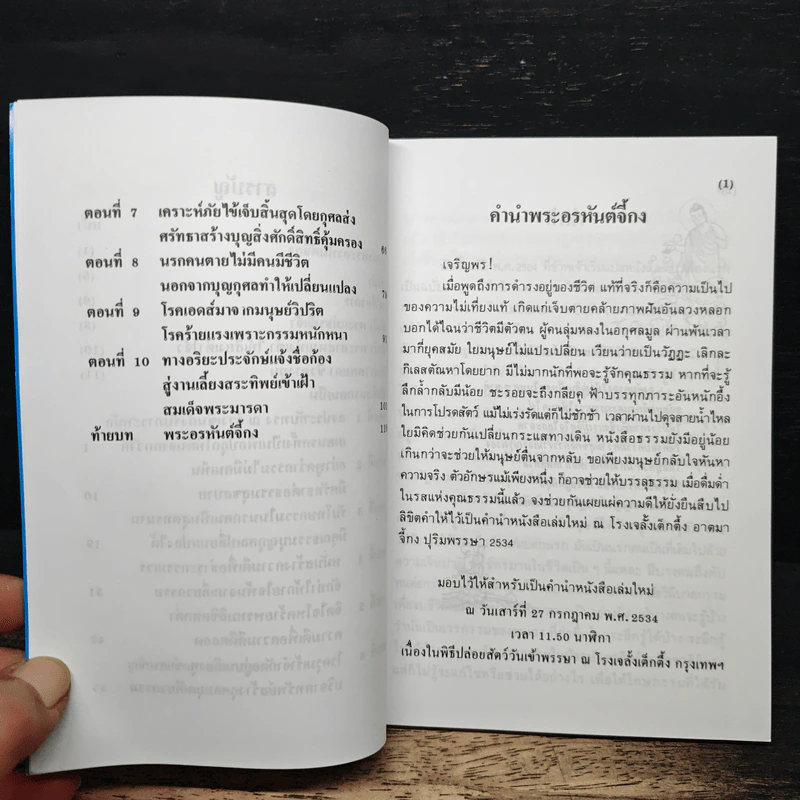 ตอนที่ 7 เคราะห์ภัยไข้เจ็บสิ้นสุดโดยกุศลส่ง
ศรัทธาสร้างบุญสิ่งศักดิ์สิทธิ์คุ้มครอง
ตอนที่ 8 นรกคนตายไม่มีคนมีชีวิต
นอกจากบุญกุศลทำให้เปลี่ยนแปลง
ตอนที่ 9 โรคเอดส์มาจาเกมนุษย์วิปริต
โรคร้ายแรงเพราะกรรมหนักหนา
ตอนที่ 10 ทางอริยะประจักษ์แจ้งชื่อก้อง
สู่งานเลี้ยงสระทิพย์เข้าเฝ้า
สมเด็จพระมารดา
ท้ายบท พระอรหันต์จี้กง
(1)
คำนำพระอรหันต์จี้กง
เจริญพร!
เมื่อพูดถึงการดำรงอยู่ของชีวิต แท้ที่จริงก็คือความเป็นไป
ของความไม่เที่ยงแท้ เกิดแก่เจ็บตายคล้ายภาพฝันอันลวงหลอก
บอกได้ไฉนว่าชีวิตมีตัวตน ผู้คนลุ่มหลงในอกุศลมูล ผ่านพ้นเวลา
มากี่ยุคสมัย ใยมนุษย์ไม่แปรเปลี่ยน เวียนว่ายเป็นวัฏฏะ เลิกละ
กิเลสตัณหาโดยยาก มีไม่มากนักที่พอจะรู้จักคุณธรรม หากที่จะรู้
ลึกล้ำกลับมีน้อย ชะรอยจะถึงกลียุค ฟ้าบรรทุกภาระอันหนักอึ้ง
ในการโปรดสัตว์ แม้ไม่เร่งรัดแต่ก็ไม่ชักช้า เวลาผ่านไปดุจสายน้ำไหล
ใยมิคิดช่วยกันเปลี่ยนกระแสทางเดิน หนังสือธรรมยังมีอยู่น้อย
เกินกว่าจะช่วยให้มนุษย์ตื่นจากหลับ ขอเพียงมนุษย์กลับใจหันหา
ความจริง ตัวอักษรแม้เพียงหนึ่ง ก็อาจช่วยให้บรรลุธรรม เมื่อดื่มด่ำ
ในรสแห่งคุณธรรมนี้แล้ว จงช่วยกันเผยแผ่ความดีให้ยั่งยืนสืบไป
ลิขิตคำให้ไว้เป็นคำนำหนังสือเล่มใหม่ ณ โรงเจลั้งเต็กตึ้ง อาตมา
จี้กง ปุริมพรรษา 2534
มอบไว้ให้สำหรับเป็นคำนำหนังสือเล่มใหม่
ณ วันเสาร์ที่ 27 กรกฎาคม พ.ศ. 2534
เวลา 11.50 นาฬิกา
เนื่องในพิธีปล่อยสัตว์วันเข้าพรรษา ณ โรงเจลั้งเต็กตึ้ง กรุงเทพฯ